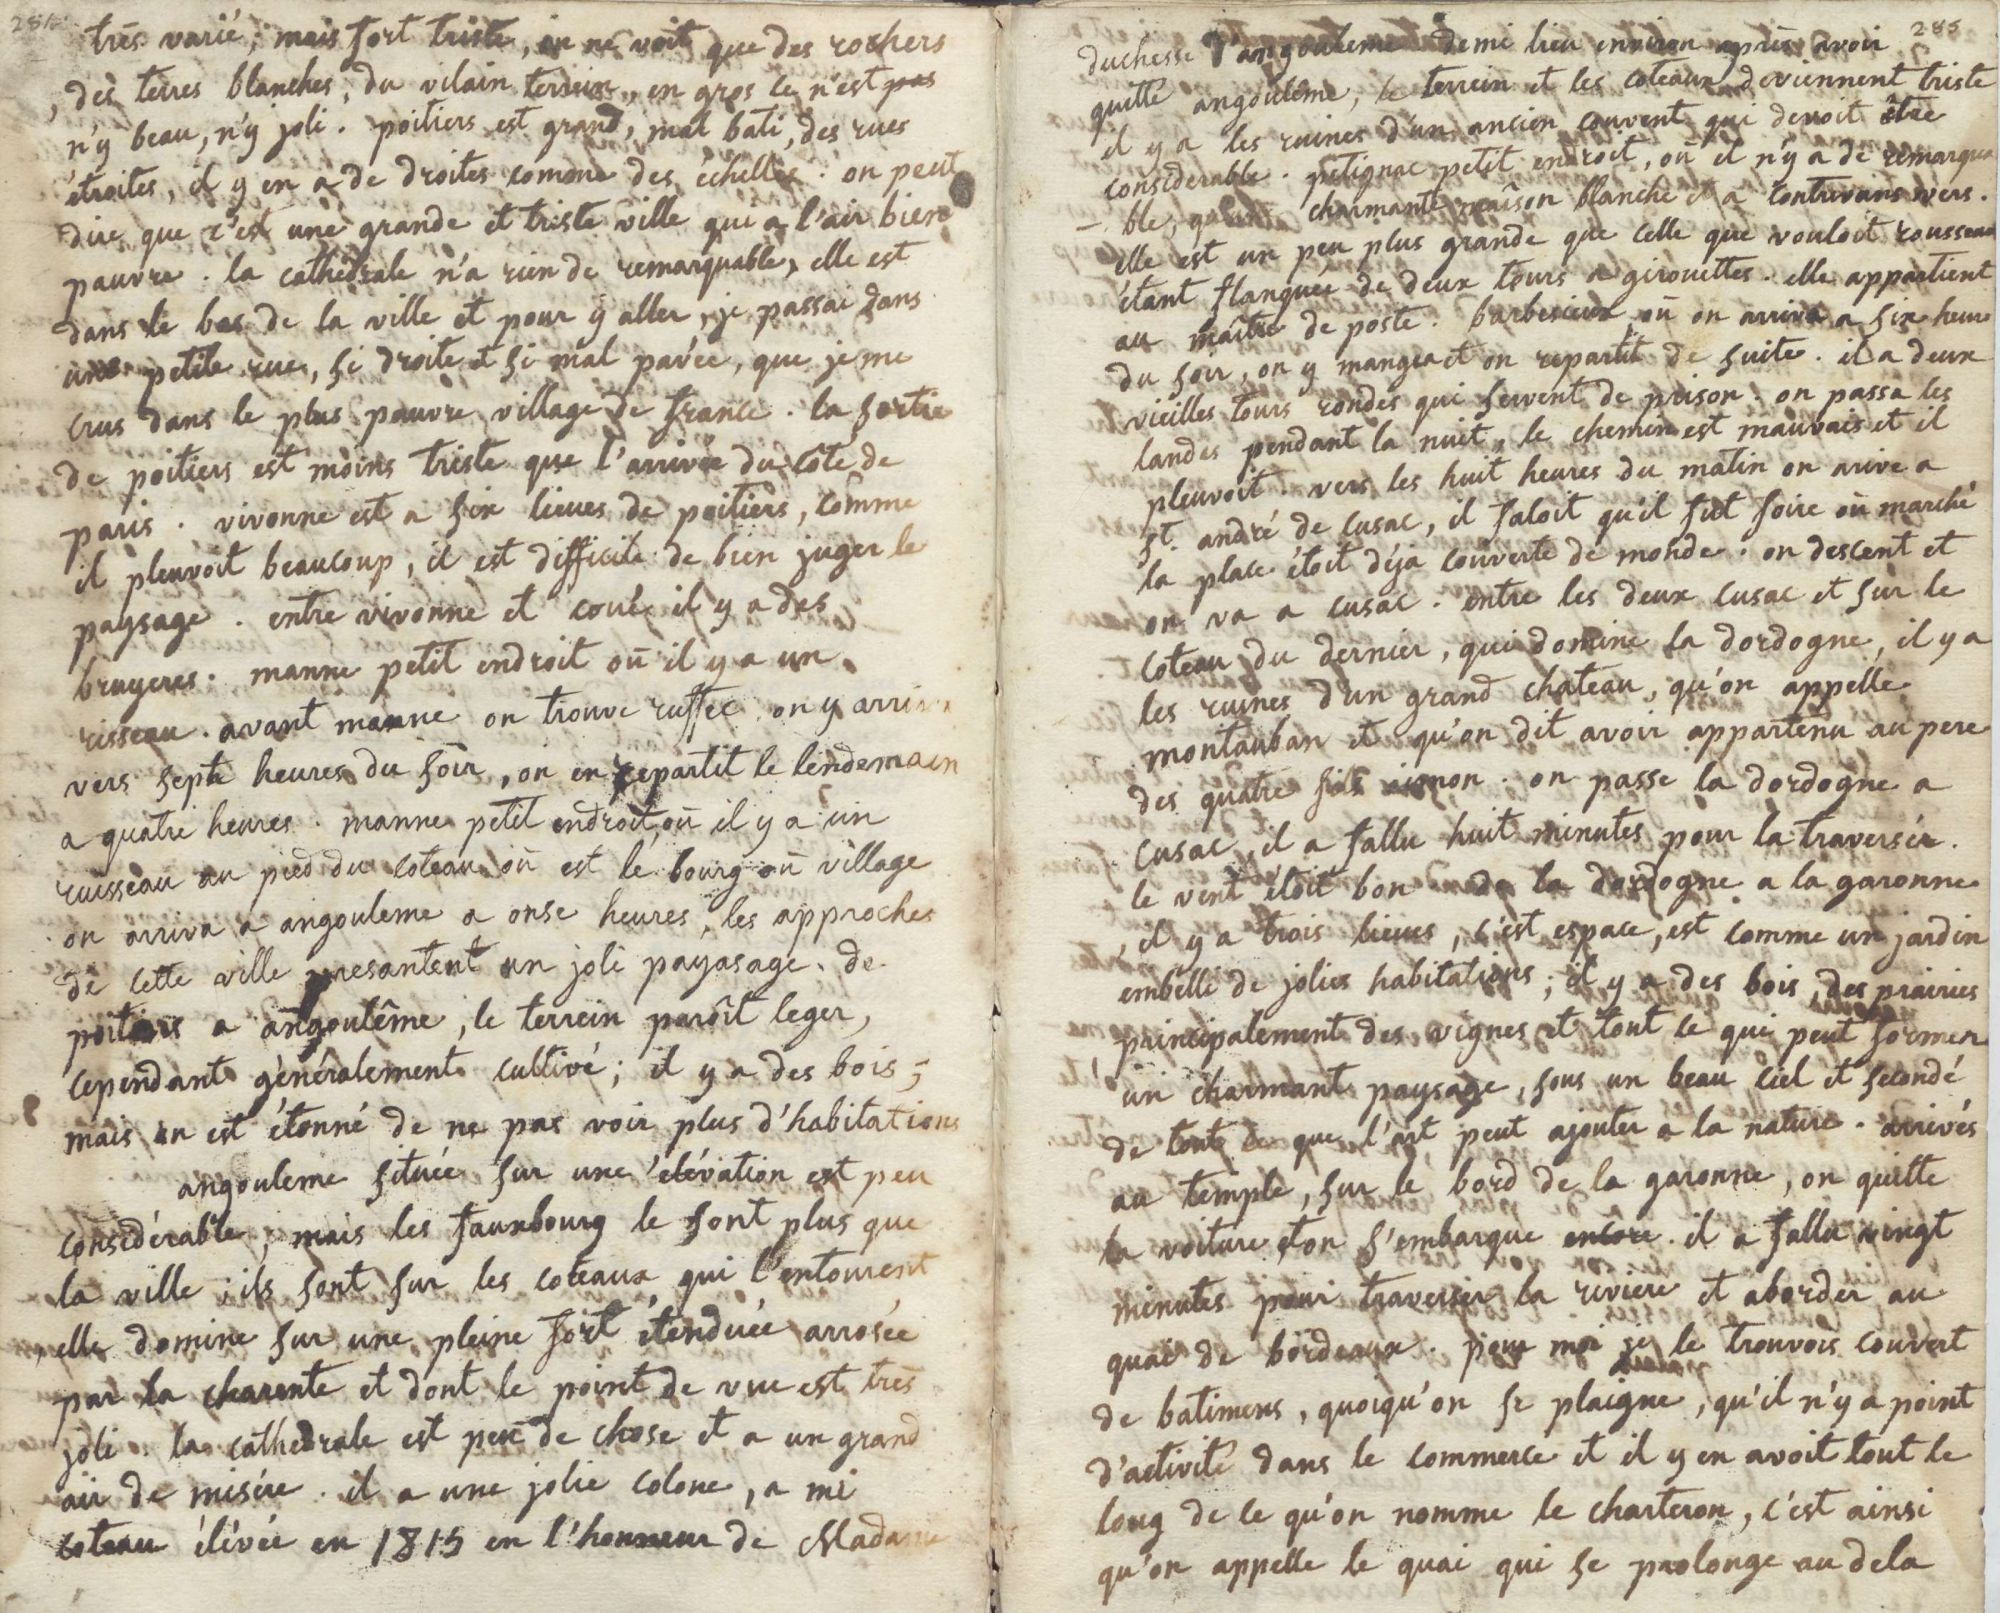 284
très varié; mais fort triste, on ne voit que des rochers
, des terres blanches, du vilain terrein, en gros ce n'est pas
n'y beau, n'y joli. poitiers est grand, mal bati, des rues
étroites, il y en a de droites comme des échelles. on peut
dire que c'est une grande et triste ville qui a l'air bien
pauvre. la cathédrale n'a rien de remarquable, elle est
dans le bas de la ville et pour y aller, je passai dans
une petite rue, si droite et si mal pavée, que je me
crus dans le plus pauvre village de france. la sortie
de poitiers est moins triste que l'arrivée du côté de
paris. vivonne est a six lieues de poitiers, comme
il pleuvoit beaucoup, il est difficile de bien juger le
paysage. entre vivonne et coué il y a des
bruyeres. manne petit endroit où il y a un
risseau. avant manne on trouve ruffec. on y arriva
vers sept heures du soir, on en repartit le lendemain
a quatre heures. manne petit endroit, où il y a un
ruisseau au pied du coteau où est le bourg où village
on arriva a angouleme a onse heures, les approches
de cette ville presantent un joli payasage. de
poitiers a angoulême, le terrein paroît leger,
cependant généralement cultivé; il y a des bois;
mais on est étonné de ne pas voir plus d'habitations
angouleme située sur une élévation est peu
considérable; mais les fauxbourg le sont plus que
la ville; ils sont sur les coteaux qui l'entourent
, elle domine sur une pleine fort étenduée arrosée
par la charente et dont le point de vue est très
joli. la cathedrale est peu de chose et a un grand
air de misére. il a une jolie colone, a mi
coteau élévée en 1815 en l'honneur de Madame
285
duchesse d'angouleme demi lieu environ après avoir
quitté angoulême, le terrein et les coteaux deviennent triste
il y a les ruines d'un ancien couvent qui devoit être
considerable. petignac petit endroit, où il n'y a de remarqua
- ble, qu'une charmante maîson blanche et a contrevans vers.
elle est un peu plus grande que celle que vouloit rousseau
étant flanquée de deux tours a girouettes. elle appartient
au maître de poste. barbesieux où on arriva a six heure
du soir, on y mangea et on repartit de suite. il a deux
vieilles tours rondes qui servent de prison. on passa les
landes pendant la nuit, le chemin est mauvais et il
pleuvoit. vers les huit heures du matin on arive a
st. andré de cusac, il faloit qu'il fut foire où marché
la place étoit déja couverte de monde. on descent et
on va a cusac. entre les deux cusac et sur le
coteau du dernier, qui domine la dordogne, il y a
les ruines d'un grand chateau, qu'on appelle
montauban et qu'on dit avoir appartenu au pere
des quatre fils aimon. on passe la dordogne a
cusac, il a fallu huit minutes pour la traversér.
le vent étoit bon de la dordogne a la garonne
, il y a trois lieues, c'est espace, est comme un jardin
embelli de jolies habitations; il y a des bois, des prairies
principalement des vignes et tout ce qui peut former
un charmant paysage, sous un beau ciel et secondé
de tout ce que l'art peut ajouter a la nature. arrivés
au temple, sur le bord de la garonne, on quitte
la voiture et on s'embarque encore. il a fallu vingt
minutes pour traverser la riviere et aborder au
quai de bordeaux. pour moi je le trouvois couvert
de batimens, quoiqu'on se plaigne, qu'il n'y a point
d'activité dans le commerce et il y en avoit tout le
long de ce qu'on nomme le charteron, c'est ainsi
qu'on appelle le quai qui se prolonge au dela